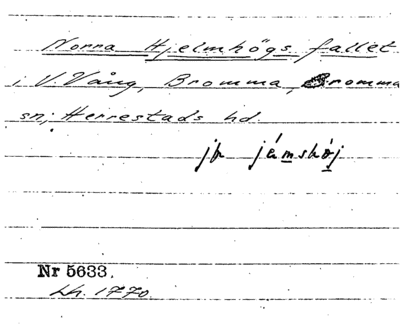 Norra Hjelmhögs fallet
i V. Vång, Bromma, Bromma
sn; Herrestads hd.
jfr jämshöj
Nr 5633.
Lh. 1770.